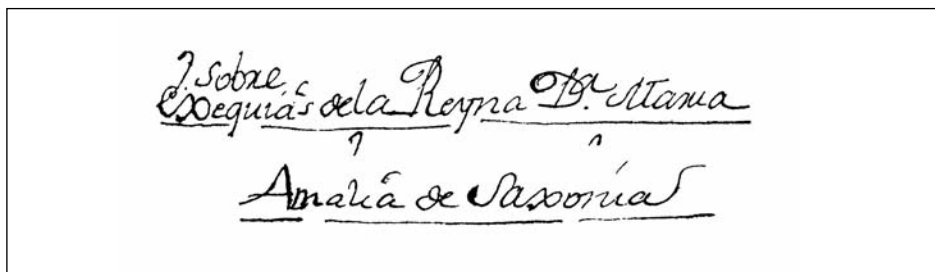 sobre
exequias de la Reyna Dª. Maria
Amalia de Saxonia